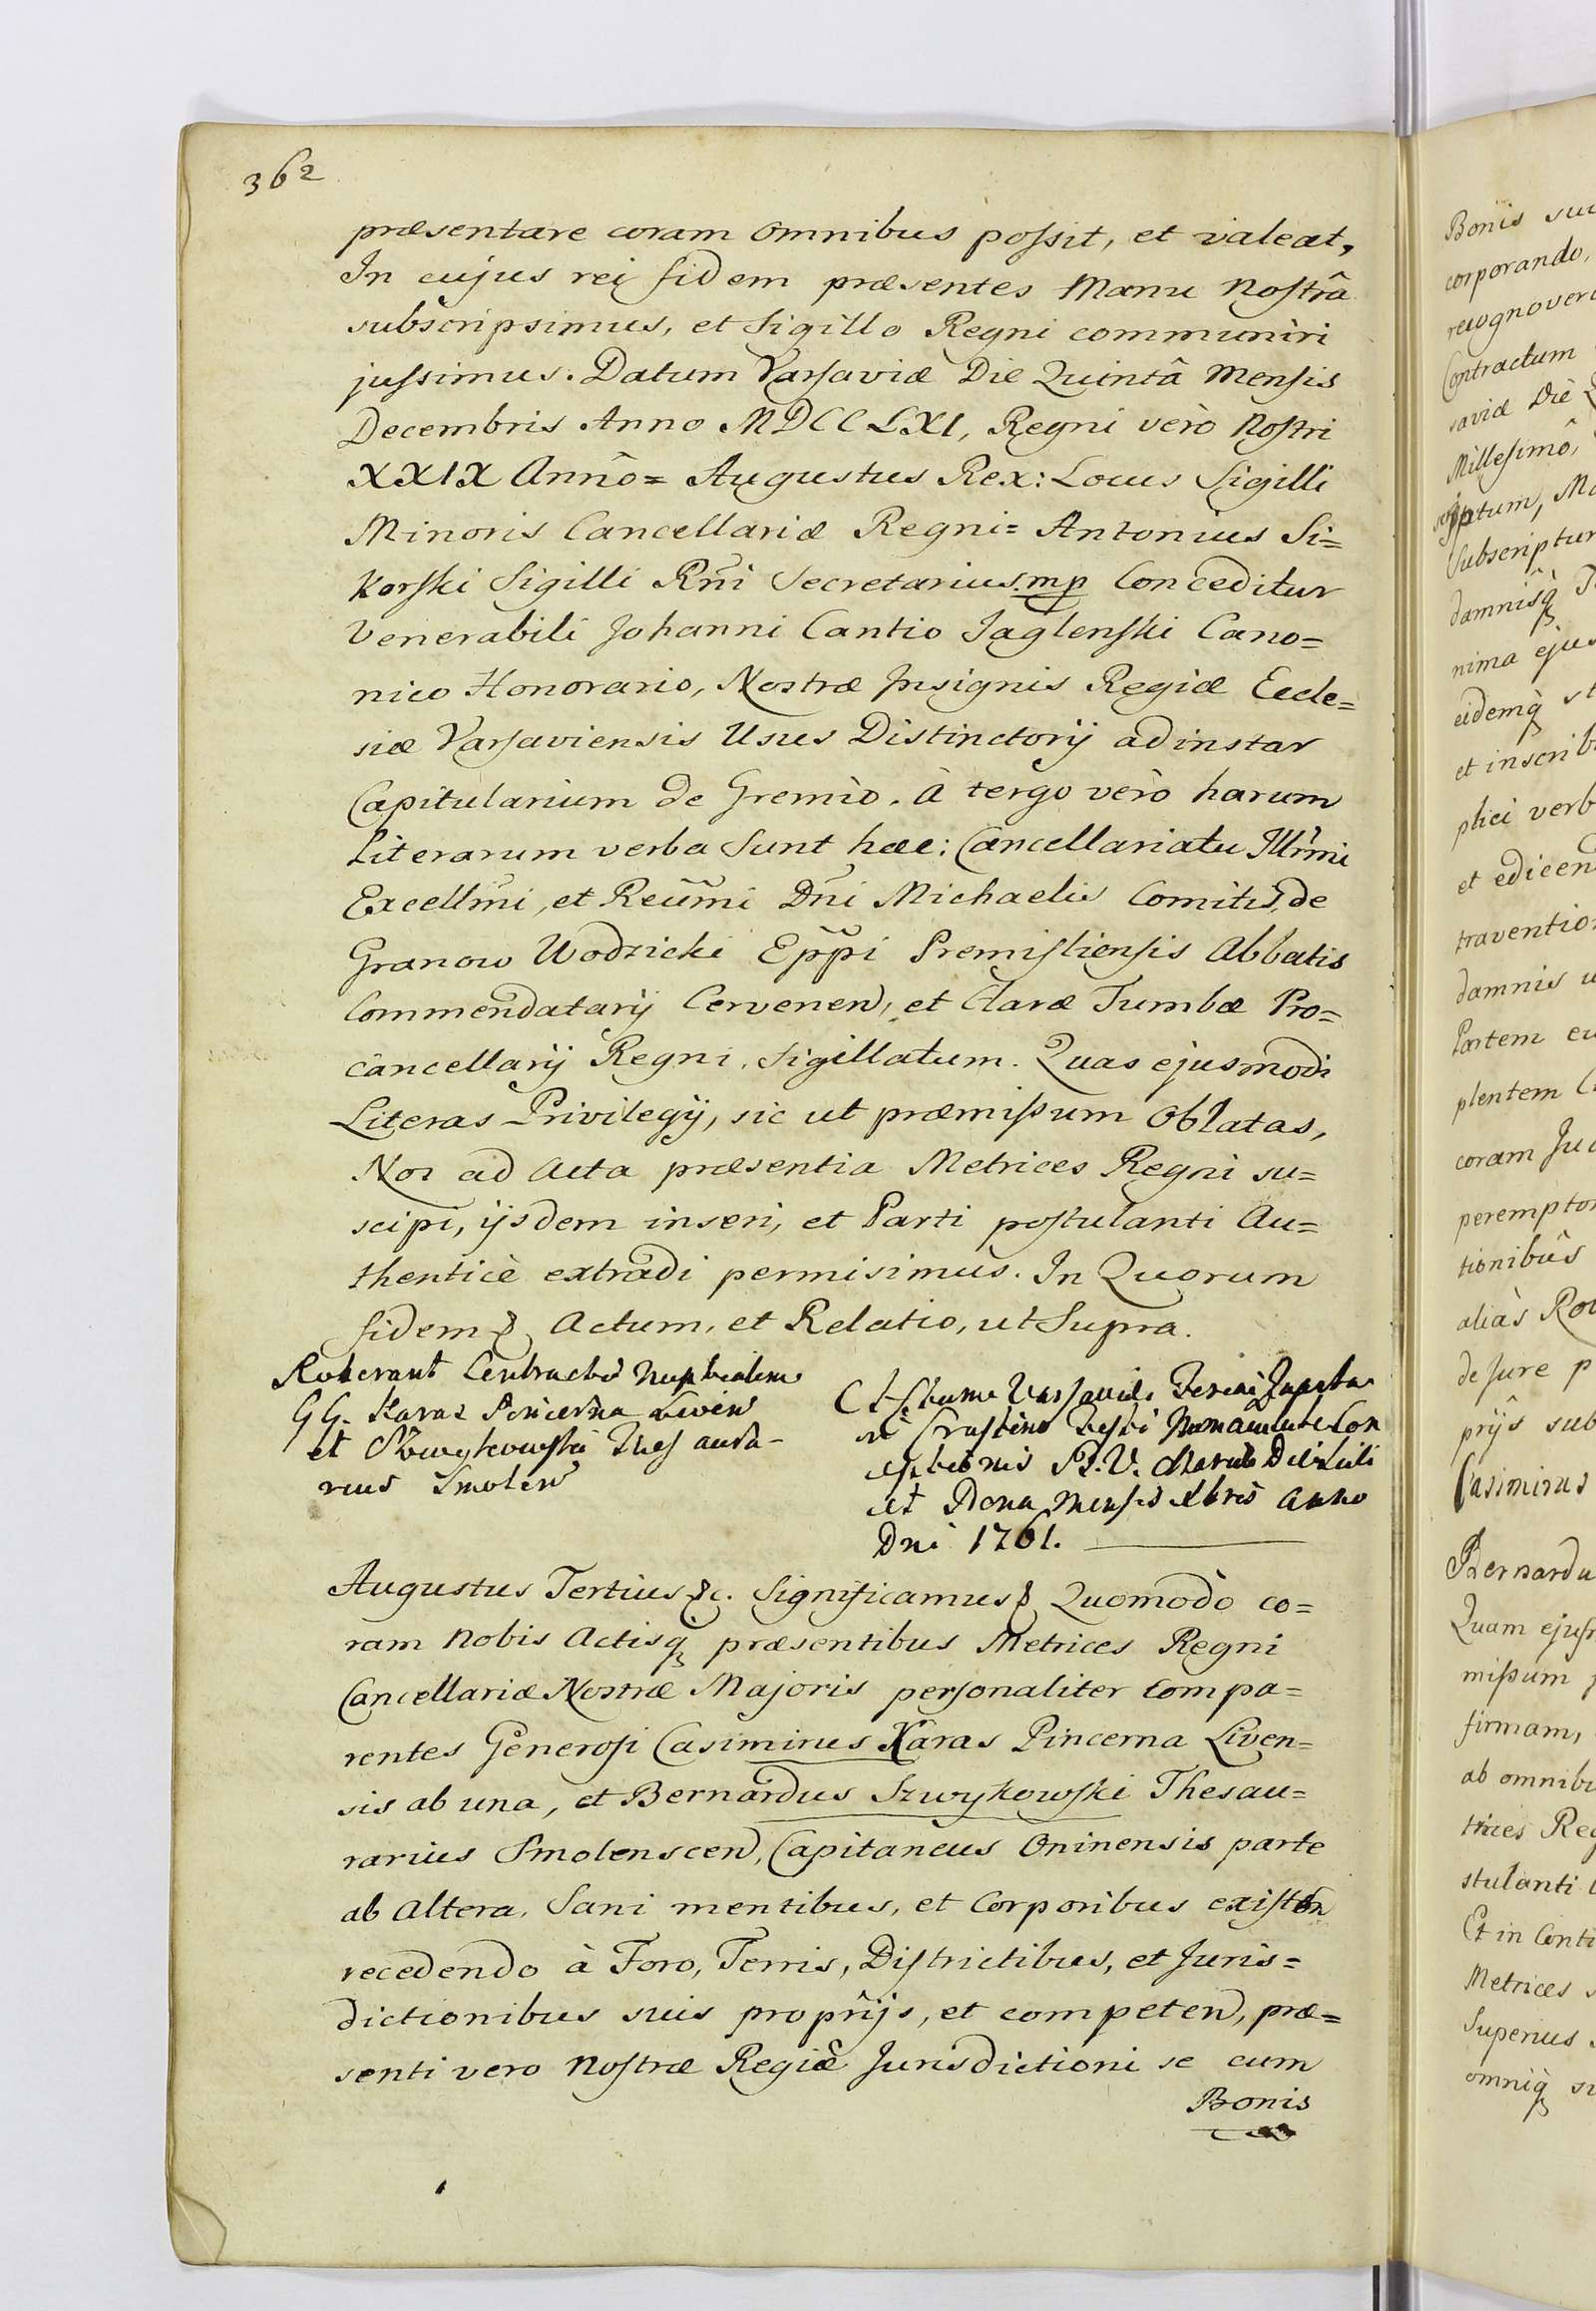 362
præsentare coram omnibus possit, et valeat,
In cujus rei fidem præsentes Manu Nostrâ
subscripsimus, et Sigillo Regni communiri
jussimus. Datum Varsaviæ Die Quintâ Mensis
Decembris Anno MDCCLXI, Regni verò Nostri
XXIX Annô= Augustus Rex: Locus Sigilli
Minoris Cancellariæ Regni= Antonius Si=
korski Sigilli Rñi Secretarius.mp Conceditur
Venerabili Johanni Cantio Jaglenski Cano=
nico Honorario, Nostræ Insignis Regiæ Eccle=
siæ Varsaviensis Usus Distinctorij ad instar
Capitularium de Gremiò. à tergo verò harum
Literarum verba Sunt hæc: Cancellariatu Illr̃mi
Excellm̃i, et Reũmi Dñi Michaelis Comitis, de
Granow Wodzicki Epp̃i Premisliensis Abbatis
Commendatarij Cervenen, et Claræ Tumbæ Pro=
cancellarij Regni, Sigillatum. Quas ejusmodi
Literas Privilegij, sic ut præmissum Oblatas,
Nos ad Acta præsentia Metrices Regni su=
scipi, ijsdem inseri, et Parti postulanti Au=
thenticè extradi permisimus. In Quorum
fidem & Actum, et Relatio, ut Supra.
Roborant Contractus Nuptialem
GG. Karas Pincerna Liven
et Szwykowski Thesaura-
rius Smolen
Actum Varsaviæ Feria
in Crastino Festi Immaculatæ Con
ceptionis B.V. Mariæ Die
et Nona Mensis Xbris Anno
Dni 1761.
Augustus Tertius &c. Significamus & Quomodò co=
ram Nobis Actisq præsentibus Metrices Regni
Cancellariæ Nostræ Majoris personaliter Compa=
rentes Generosi Casimirus Karas Pincerna Liven=
sis ab una, et Bernardus Szwykowski Thesau=
rarius Smolenscen, Capitaneus Oninensis parte
ab Altera, Sani mentibus, et Corporibus existen
recedendo à Foro, Terris, Districtibus, et Juris=
dictionibus suis proprijs, et competen, præ=
senti vero Nostræ Regiæ Jurisdictioni se cum
Bonis
Bonis
corporando,
Contractum
Millesimô,
damnisq
nima ejus
eidemq
plici verb
damnis
Partem
coram
tionibus
aliàs
de Jure
prijs sub
Casimirus
Bernardu
Quam
missum
firmam,
stulanti
Et in
Metrices
Superius
omniq